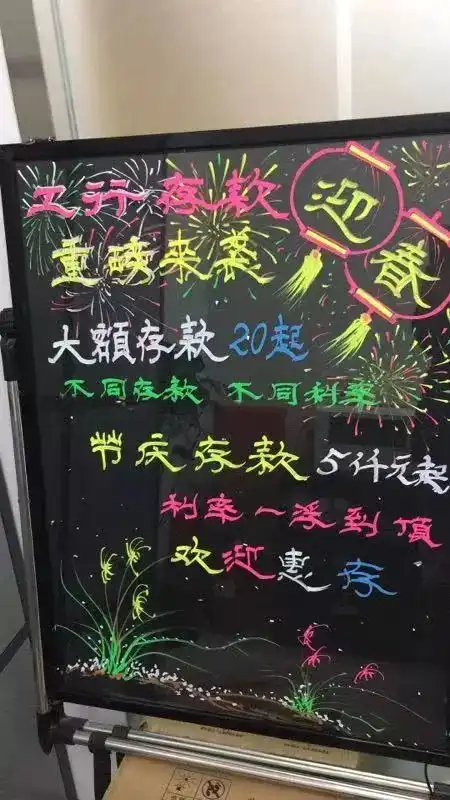 工行存款
迎春
重磅来袭
大額存款 20起
不同存款 不同利率
节庆存款 5仟元起
利率一浮到頂
欢迎惠存